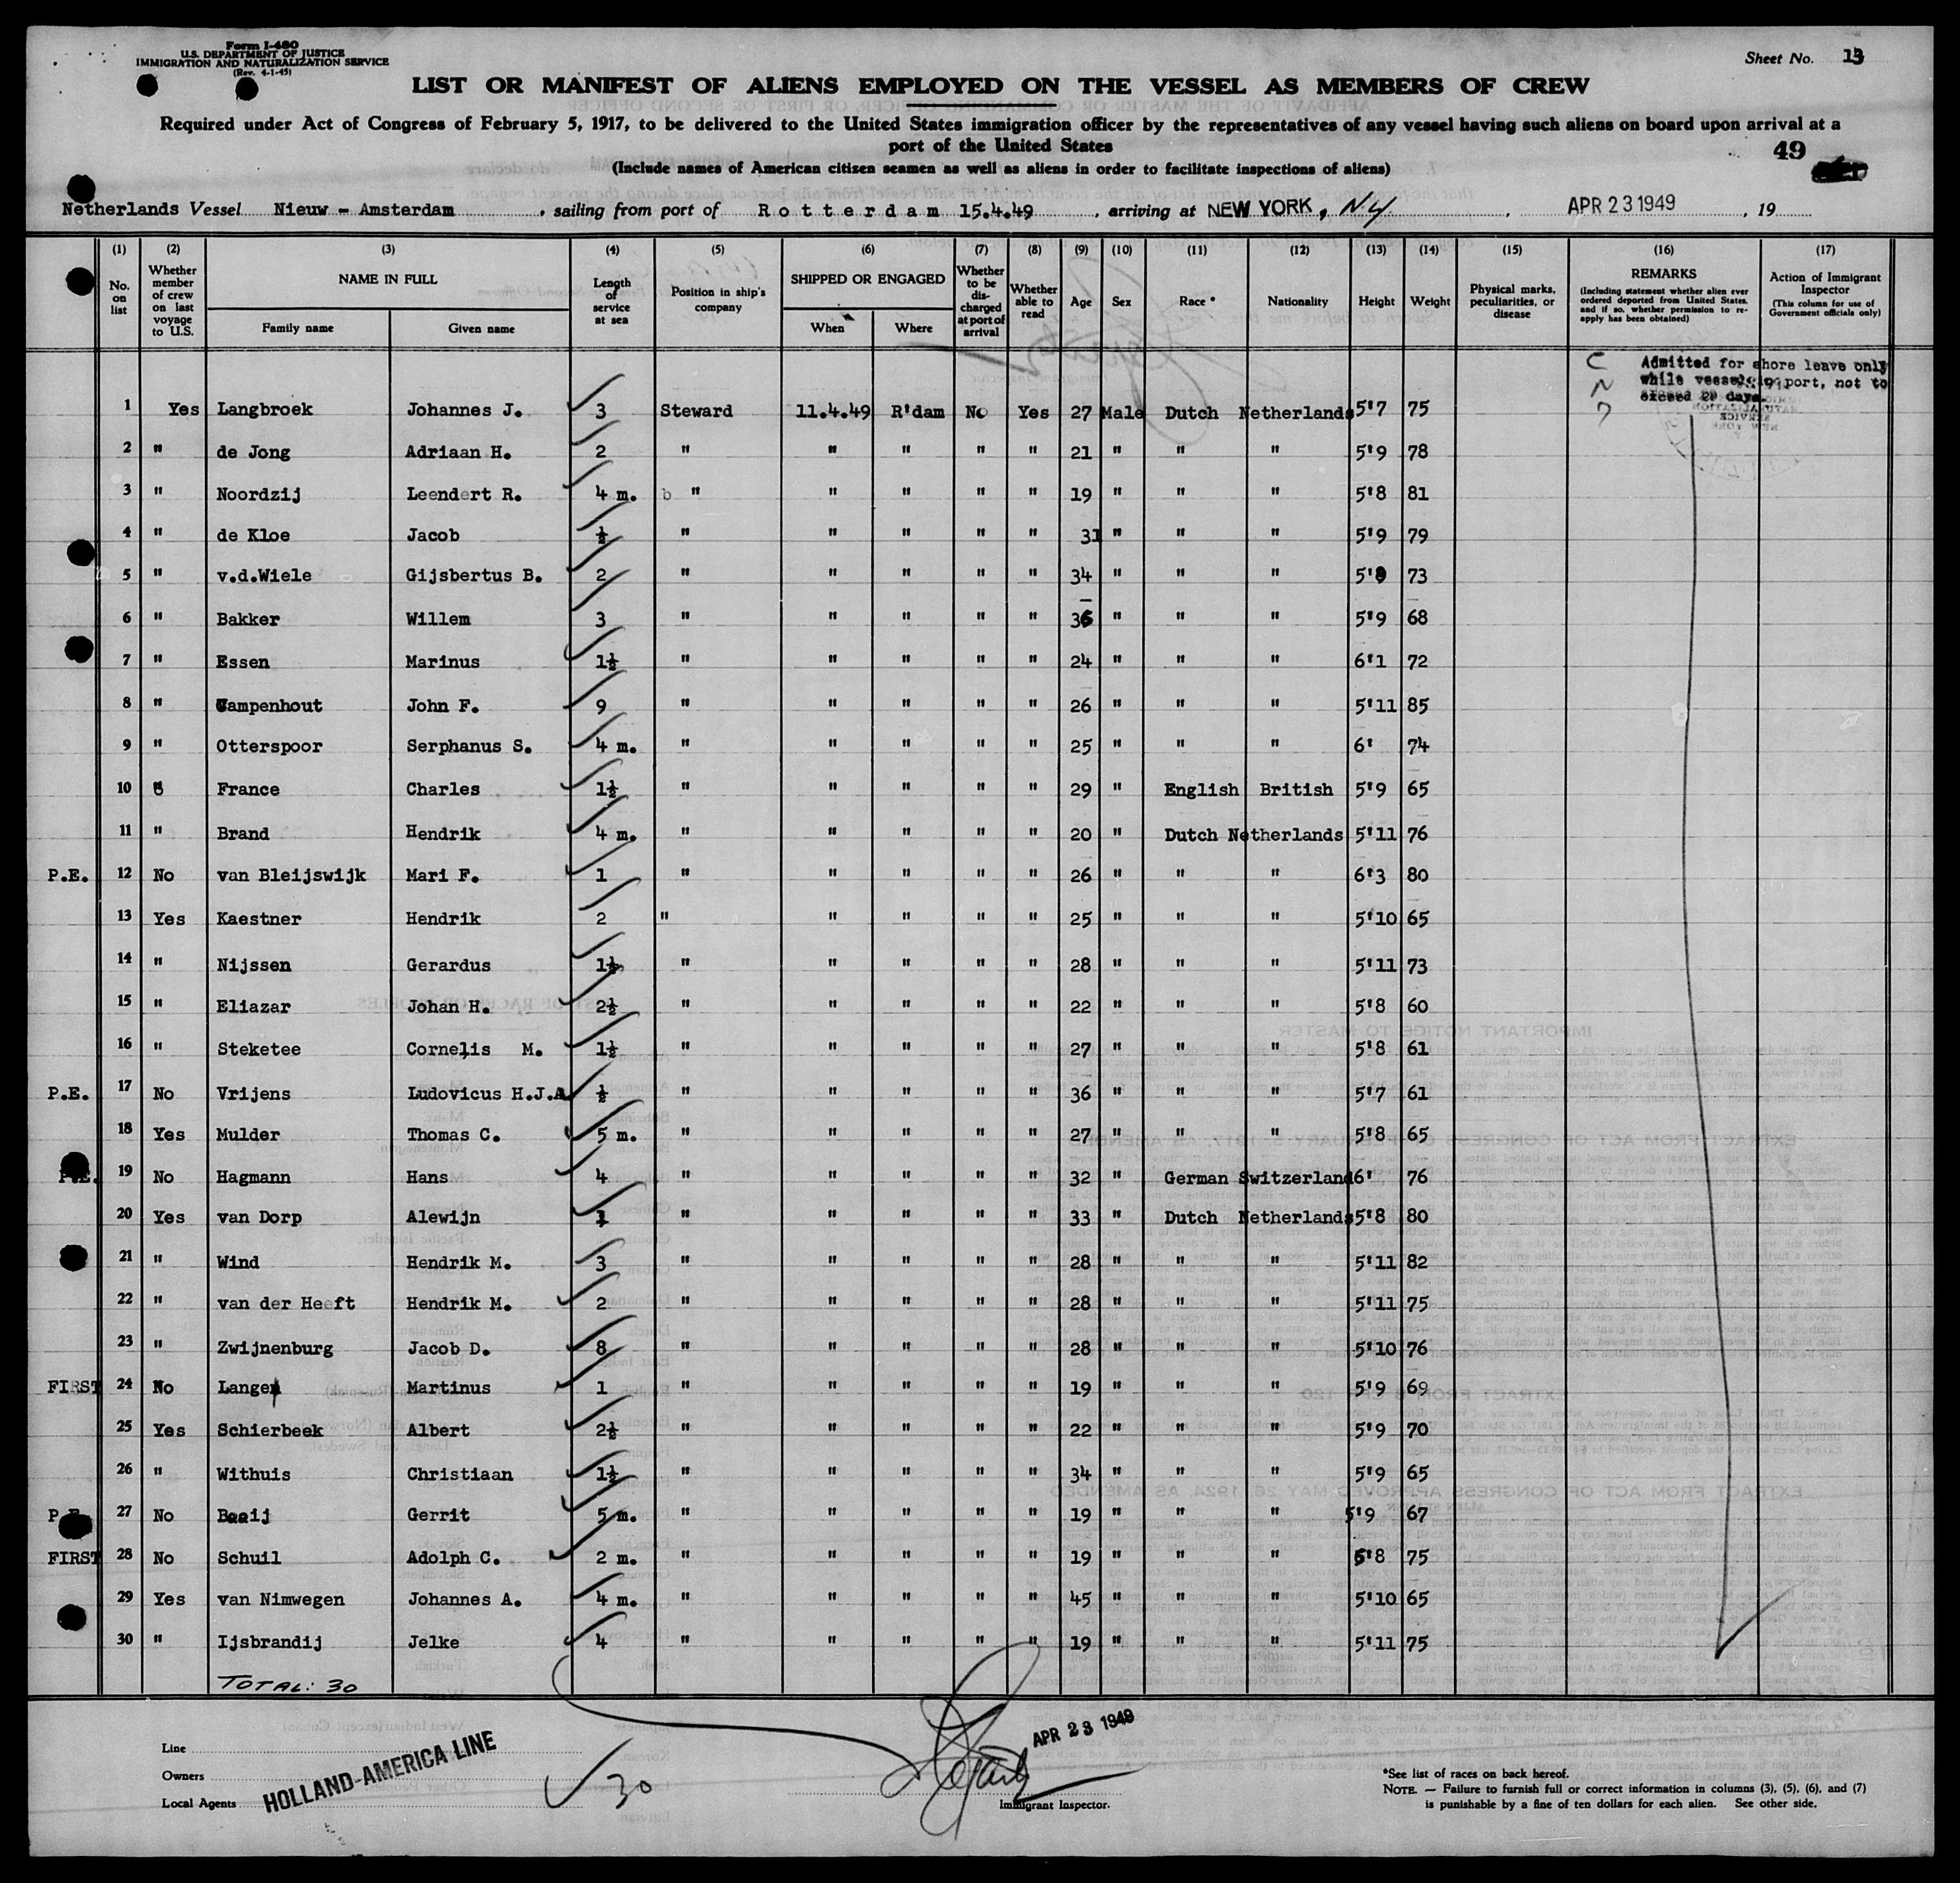 Form I-480
U.S. DEPARTMENT OF JUSTICE
IMMIGRATION AND NATURALIZATION SERVICE
(Rev. 4-1-45)
Sheet No. 13
LIST OR MANIFEST OF ALIENS EMPLOYED ON THE VESSEL AS MEMBERS OF CREW
Required under Act of Congress of February 5, 1917, to be delivered to the United States immigration officer by the representatives of any vessel having such aliens on board upon arrival at a
port of the United States
49
(Include names of American citizen seamen as well as aliens in order to facilitate inspections of aliens)
Netherlands Vessel Nieuw - Amsterdam , sailing from port of Rotterdam 15.4.49 , arriving at NEW YORK, N.Y. , APR 23 1949 , 19
(1) No. on list
(2) Whether member of crew on last voyage to U.S.
(3) NAME IN FULL Family name Given name
(4) Length of service at sea
(5) Position in ship's company
(6) SHIPPED OR ENGAGED When Where
(7) Whether to be discharged at port of arrival
(8) Whether able to read
(9) Age
(10) Sex
(11) Race *
(12) Nationality
(13) Height
(14) Weight
(15) Physical marks, peculiarities, or disease
(16) REMARKS (Including statement whether alien ever ordered deported from United States, and if so, whether permission to re-apply has been obtained)
(17) Action of Immigrant Inspector (This column for use of Government officials only)
Admitted for shore leave only
while vessel in port, not to
exceed 29 days.
1 Yes Langbroek Johannes J. 3 Steward 11.4.49 R'dam No Yes 27 Male Dutch Netherlands 5'7 75
2 " de Jong Adriaan H. 2 " " " " " 21 " " " 5'9 78
3 " Noordzij Leendert R. 4 m. " " " " " 19 " " " 5'8 81
4 " de Kloe Jacob ½ " " " " " 31 " " " 5'9 79
5 " v.d.Wiele Gijsbertus B. 2 " " " " " 34 " " " 5' 73
6 " Bakker Willem 3 " " " " " 36 " " " 5'9 68
7 " Essen Marinus 1½ " " " " " 24 " " " 6'1 72
8 " Campenhout John F. 9 " " " " " 26 " " " 5'11 85
9 " Otterspoor Serphanus S. 4 m. " " " " " 25 " " " 6' 74
10 " France Charles 1½ " " " " " 29 " English British 5'9 65
11 " Brand Hendrik 4 m. " " " " " 20 " Dutch Netherlands 5'11 76
P.E. 12 No van Bleijswijk Mari F. 1 " " " " " 26 " " " 6'3 80
13 Yes Kaestner Hendrik 2 " " " " " 25 " " " 5'10 65
14 " Nijssen Gerardus 1½ " " " " " 28 " " " 5'11 73
15 " Eliazar Johan H. 2½ " " " " " 22 " " " 5'8 60
16 " Steketee Cornelis M. 1½ " " " " " 27 " " " 5'8 61
P.E. 17 No Vrijens Ludovicus H.J.A ½ " " " " " 36 " " " 5'7 61
18 Yes Mulder Thomas C. 5 m. " " " " " 27 " " " 5'8 65
P.E. 19 No Hagmann Hans 4 " " " " " 32 " German Switzerland 6' 76
20 Yes van Dorp Alewijn 1 " " " " " 33 " Dutch Netherlands 5'8 80
21 " Wind Hendrik M. 3 " " " " " 28 " " " 5'11 82
22 " van der Heeft Hendrik M. 2 " " " " " 28 " " " 5'11 75
23 " Zwijnenburg Jacob D. 8 " " " " " 28 " " " 5'10 76
FIRST 24 No Langen Martinus 1 " " " " " 19 " " " 5'9 69
25 Yes Schierbeek Albert 2½ " " " " " 22 " " " 5'9 70
26 " Withuis Christiaan 1½ " " " " " 34 " " " 5'9 65
P.E. 27 No Baaij Gerrit 5 m. " " " " " 19 " " " 5'9 67
FIRST 28 No Schuil Adolph C. 2 m. " " " " " 19 " " " 5'8 75
29 Yes van Nimwegen Johannes A. 4 m. " " " " " 45 " " " 5'10 65
30 " Ijsbrandij Jelke 4 " " " " " 19 " " " 5'11 75
TOTAL: 30
APR 23 1949
Line
Owners
Local Agents
HOLLAND-AMERICA LINE
30
Immigrant Inspector.
*See list of races on back hereof.
NOTE. — Failure to furnish full or correct information in columns (3), (5), (6), and (7)
is punishable by a fine of ten dollars for each alien. See other side.